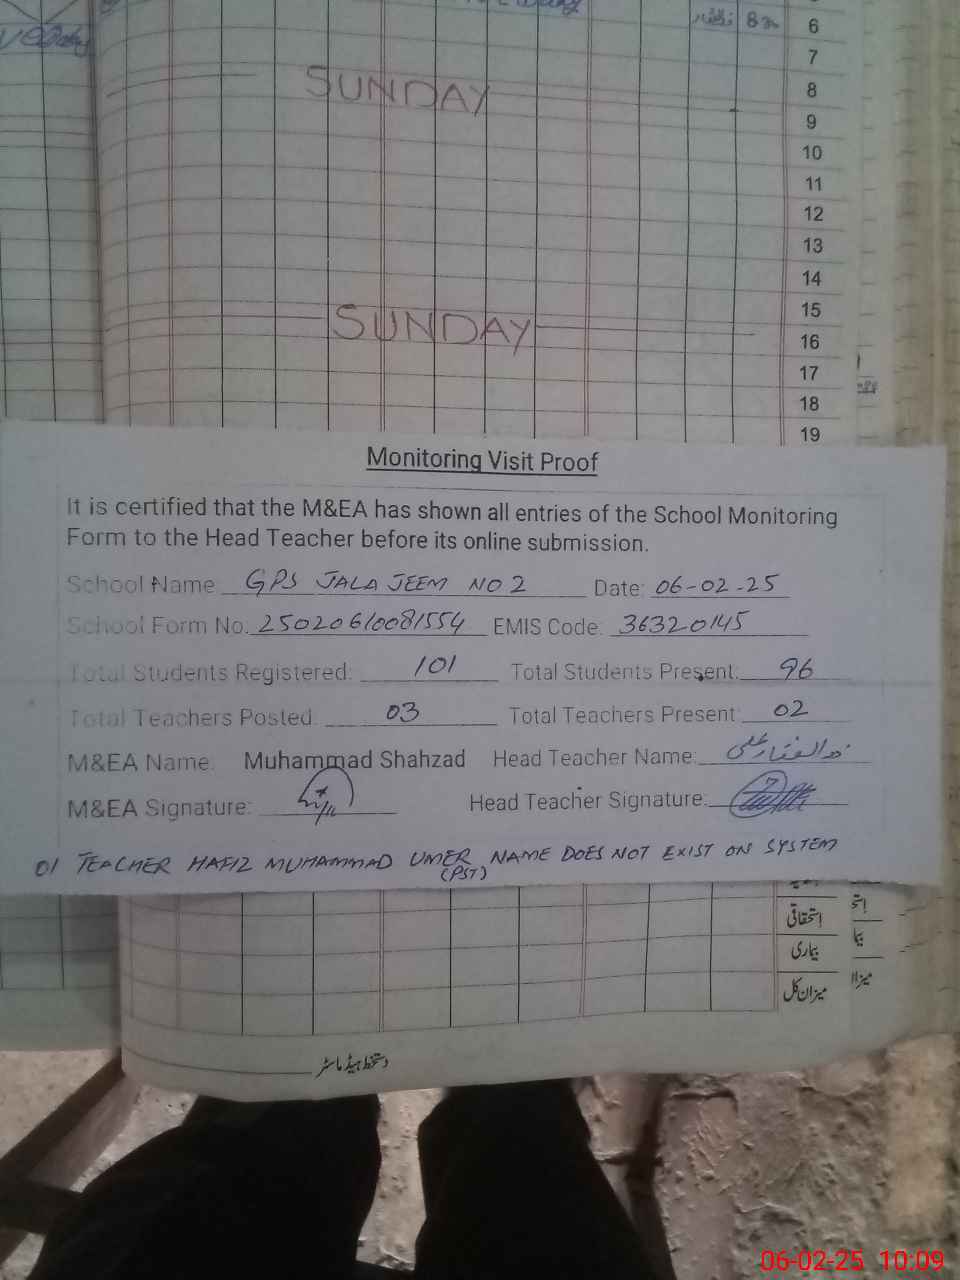 8 am
6
7
SUNDAY
8
9
10
11
12
13
14
15
SUNDAY
16
17
18
19
Monitoring Visit Proof
It is certified that the M&EA has shown all entries of the School Monitoring
Form to the Head Teacher before its online submission.
School Name GPS JALA JEEM NO 2 Date: 06-02-25
School Form No. 25020610081554 EMIS Code: 36320145
Total Students Registered: 101 Total Students Present: 96
Total Teachers Posted: 03 Total Teachers Present: 02
M&EA Name: Muhammad Shahzad Head Teacher Name: ذوالفقار علی
M&EA Signature: Head Teacher Signature:
01 TEACHER HAFIZ MUHAMMAD UMER (PST) NAME DOES NOT EXIST ON SYSTEM
استحقاقی
بیماری
میزان کل
دستخط ہیڈ ماسٹر
06-02-25 10:09